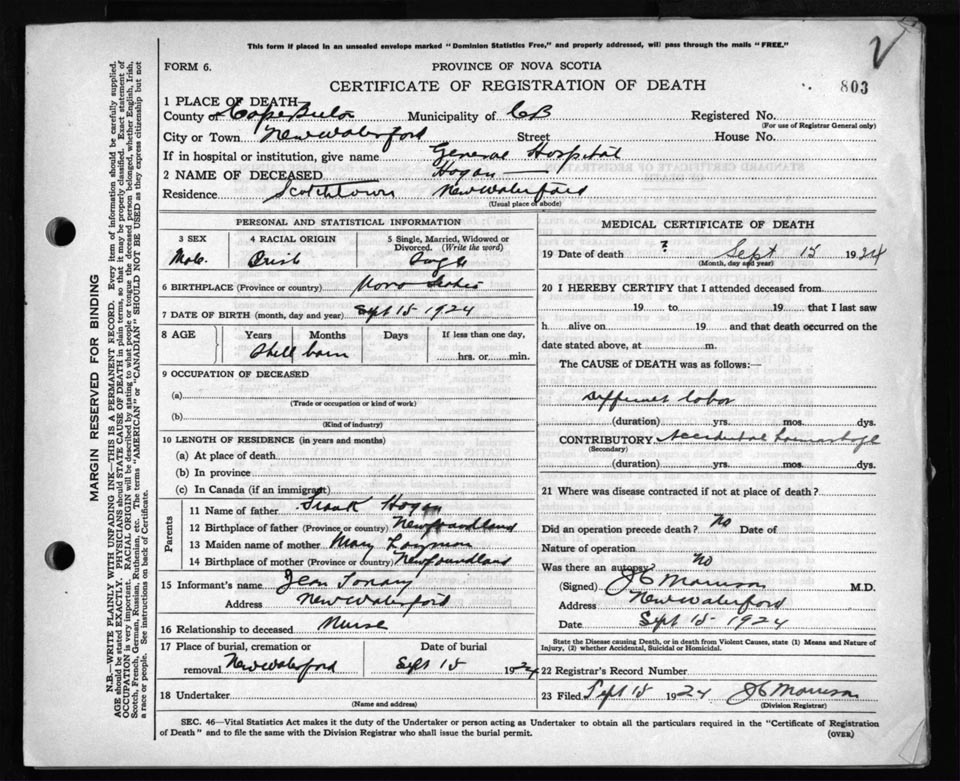 This form if placed in an unsealed envelope marked "Dominion Statistics Free," and properly addressed, will pass through the mails "FREE."
V
FORM 6.
PROVINCE OF NOVA SCOTIA
CERTIFICATE OF REGISTRATION OF DEATH
803
1 PLACE OF DEATH
County of Cape Breton Municipality of CB Registered No.
(For use of Registrar General only)
City or Town New Waterford Street House No.
If in hospital or institution, give name General Hospital
2 NAME OF DECEASED Hogan
Residence Scotchtown New Waterford
(Usual place of abode)
PERSONAL AND STATISTICAL INFORMATION
3 SEX 4 RACIAL ORIGIN 5 Single, Married, Widowed or Divorced. (Write the word)
Male Irish Single
6 BIRTHPLACE (Province or country) Nova Scotia
7 DATE OF BIRTH (month, day and year) Sept 15 1924
8 AGE Years Months Days If less than one day,
Still born hrs. or min.
9 OCCUPATION OF DECEASED
(a)
(Trade or occupation or kind of work)
(b)
(Kind of industry)
10 LENGTH OF RESIDENCE (in years and months)
(a) At place of death
(b) In province
(c) In Canada (if an immigrant)
Parents
11 Name of father Frank Hogan
12 Birthplace of father (Province or country) Newfoundland
13 Maiden name of mother Mary
14 Birthplace of mother (Province or country) Newfoundland
15 Informant's name Jean
Address New Waterford
16 Relationship to deceased Nurse
17 Place of burial, cremation or removal New Waterford
Date of burial
Sept 15 1924
18 Undertaker
(Name and address)
MEDICAL CERTIFICATE OF DEATH
19 Date of death ? Sept 15 1924
(Month, day and year)
20 I HEREBY CERTIFY that I attended deceased from
19 to 19 that I last saw
h alive on 19 and that death occurred on
date stated above, at m.
The CAUSE of DEATH was as follows:—
Difficult labor
(duration) yrs. mos. dys.
CONTRIBUTORY Accidental hemorrhage
(Secondary)
(duration) yrs. mos. dys.
21 Where was disease contracted if not at place of death?
Did an operation precede death? No Date of
Nature of operation
Was there an autopsy? No
(Signed) JC Morrison M.D.
Address New Waterford
Date Sept 15 - 1924
State the Disease causing Death, or in death from Violent Causes, state (1) Means and Nature of Injury, (2) whether Accidental, Suicidal or Homicidal.
22 Registrar's Record Number
23 Filed Sept 15 1924 JC Morrison
(Division Registrar)
SEC. 46—Vital Statistics Act makes it the duty of the Undertaker or person acting as Undertaker to obtain all the particulars required in the "Certificate of Registration
of Death" and to file the same with the Division Registrar who shall issue the burial permit.
(OVER)
MARGIN RESERVED FOR BINDING
N.B.—WRITE PLAINLY WITH UNFADING INK—THIS IS A PERMANENT RECORD. Every item of information should be carefully supplied.
AGE should be stated EXACTLY. PHYSICIANS should STATE CAUSE OF DEATH in plain terms, so that it may be properly classified. Exact statement of
OCCUPATION is very important. RACIAL ORIGIN will be described by stating to what people or tongue the deceased person belonged, whether English, Irish,
Scotch, French, German, Russian, Ruthenian, etc. The terms "AMERICAN" or "CANADIAN" SHOULD NOT BE USED as they express citizenship but not
a race or people. See instructions on back of Certificate.